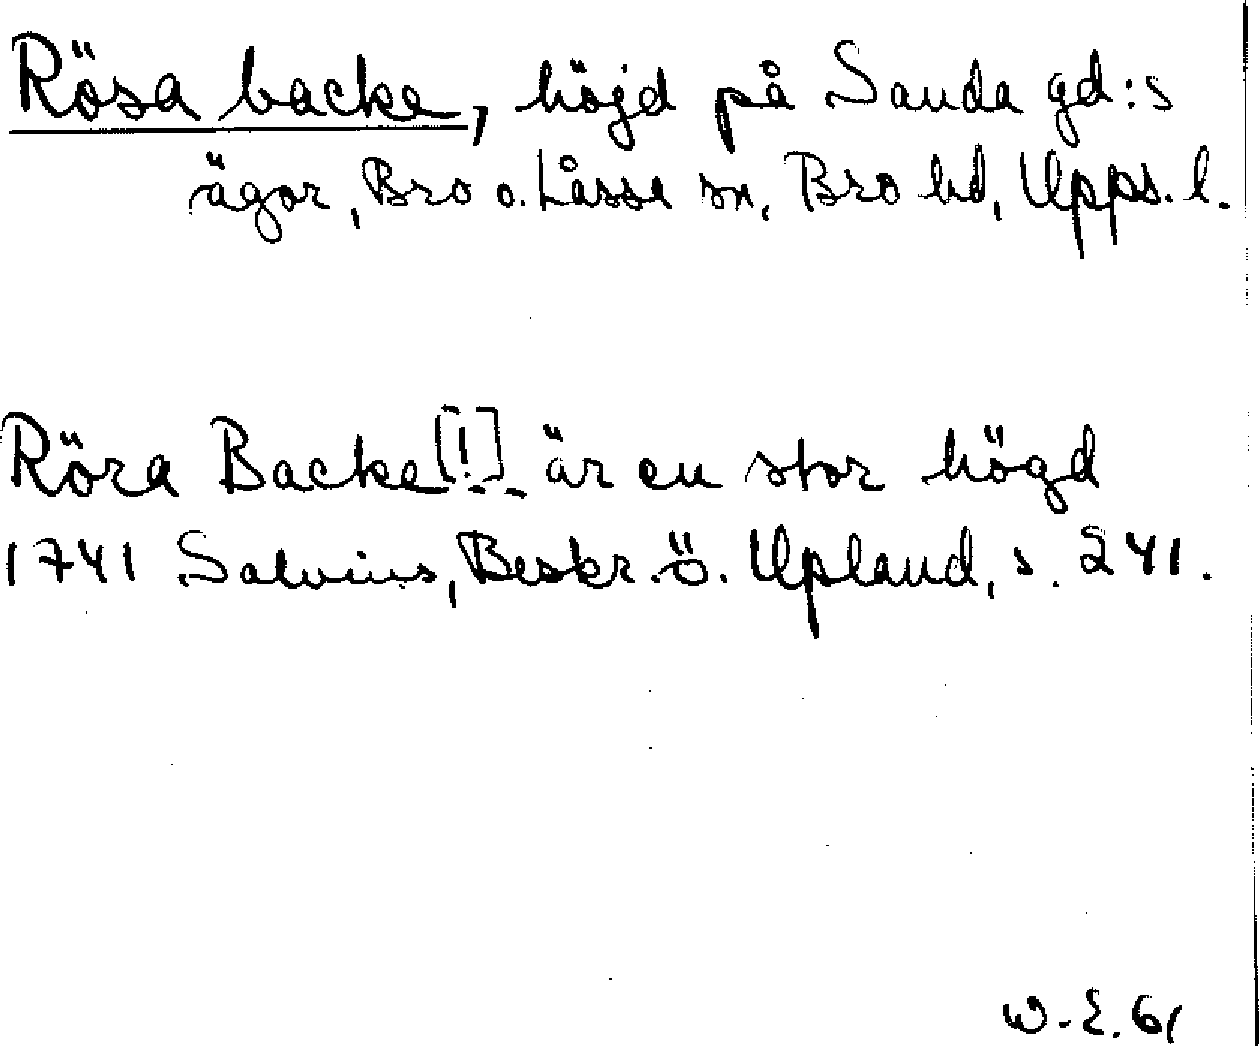 Rösa backe, höjd på Sanda gd:s
ägor, Bro o. Låssa sn, Bro hd, Upps. l.
Röra Backe [!] är en stor högd
1741 Salvius, Beskr. ö. Upland, s. 241.
W-E. 61